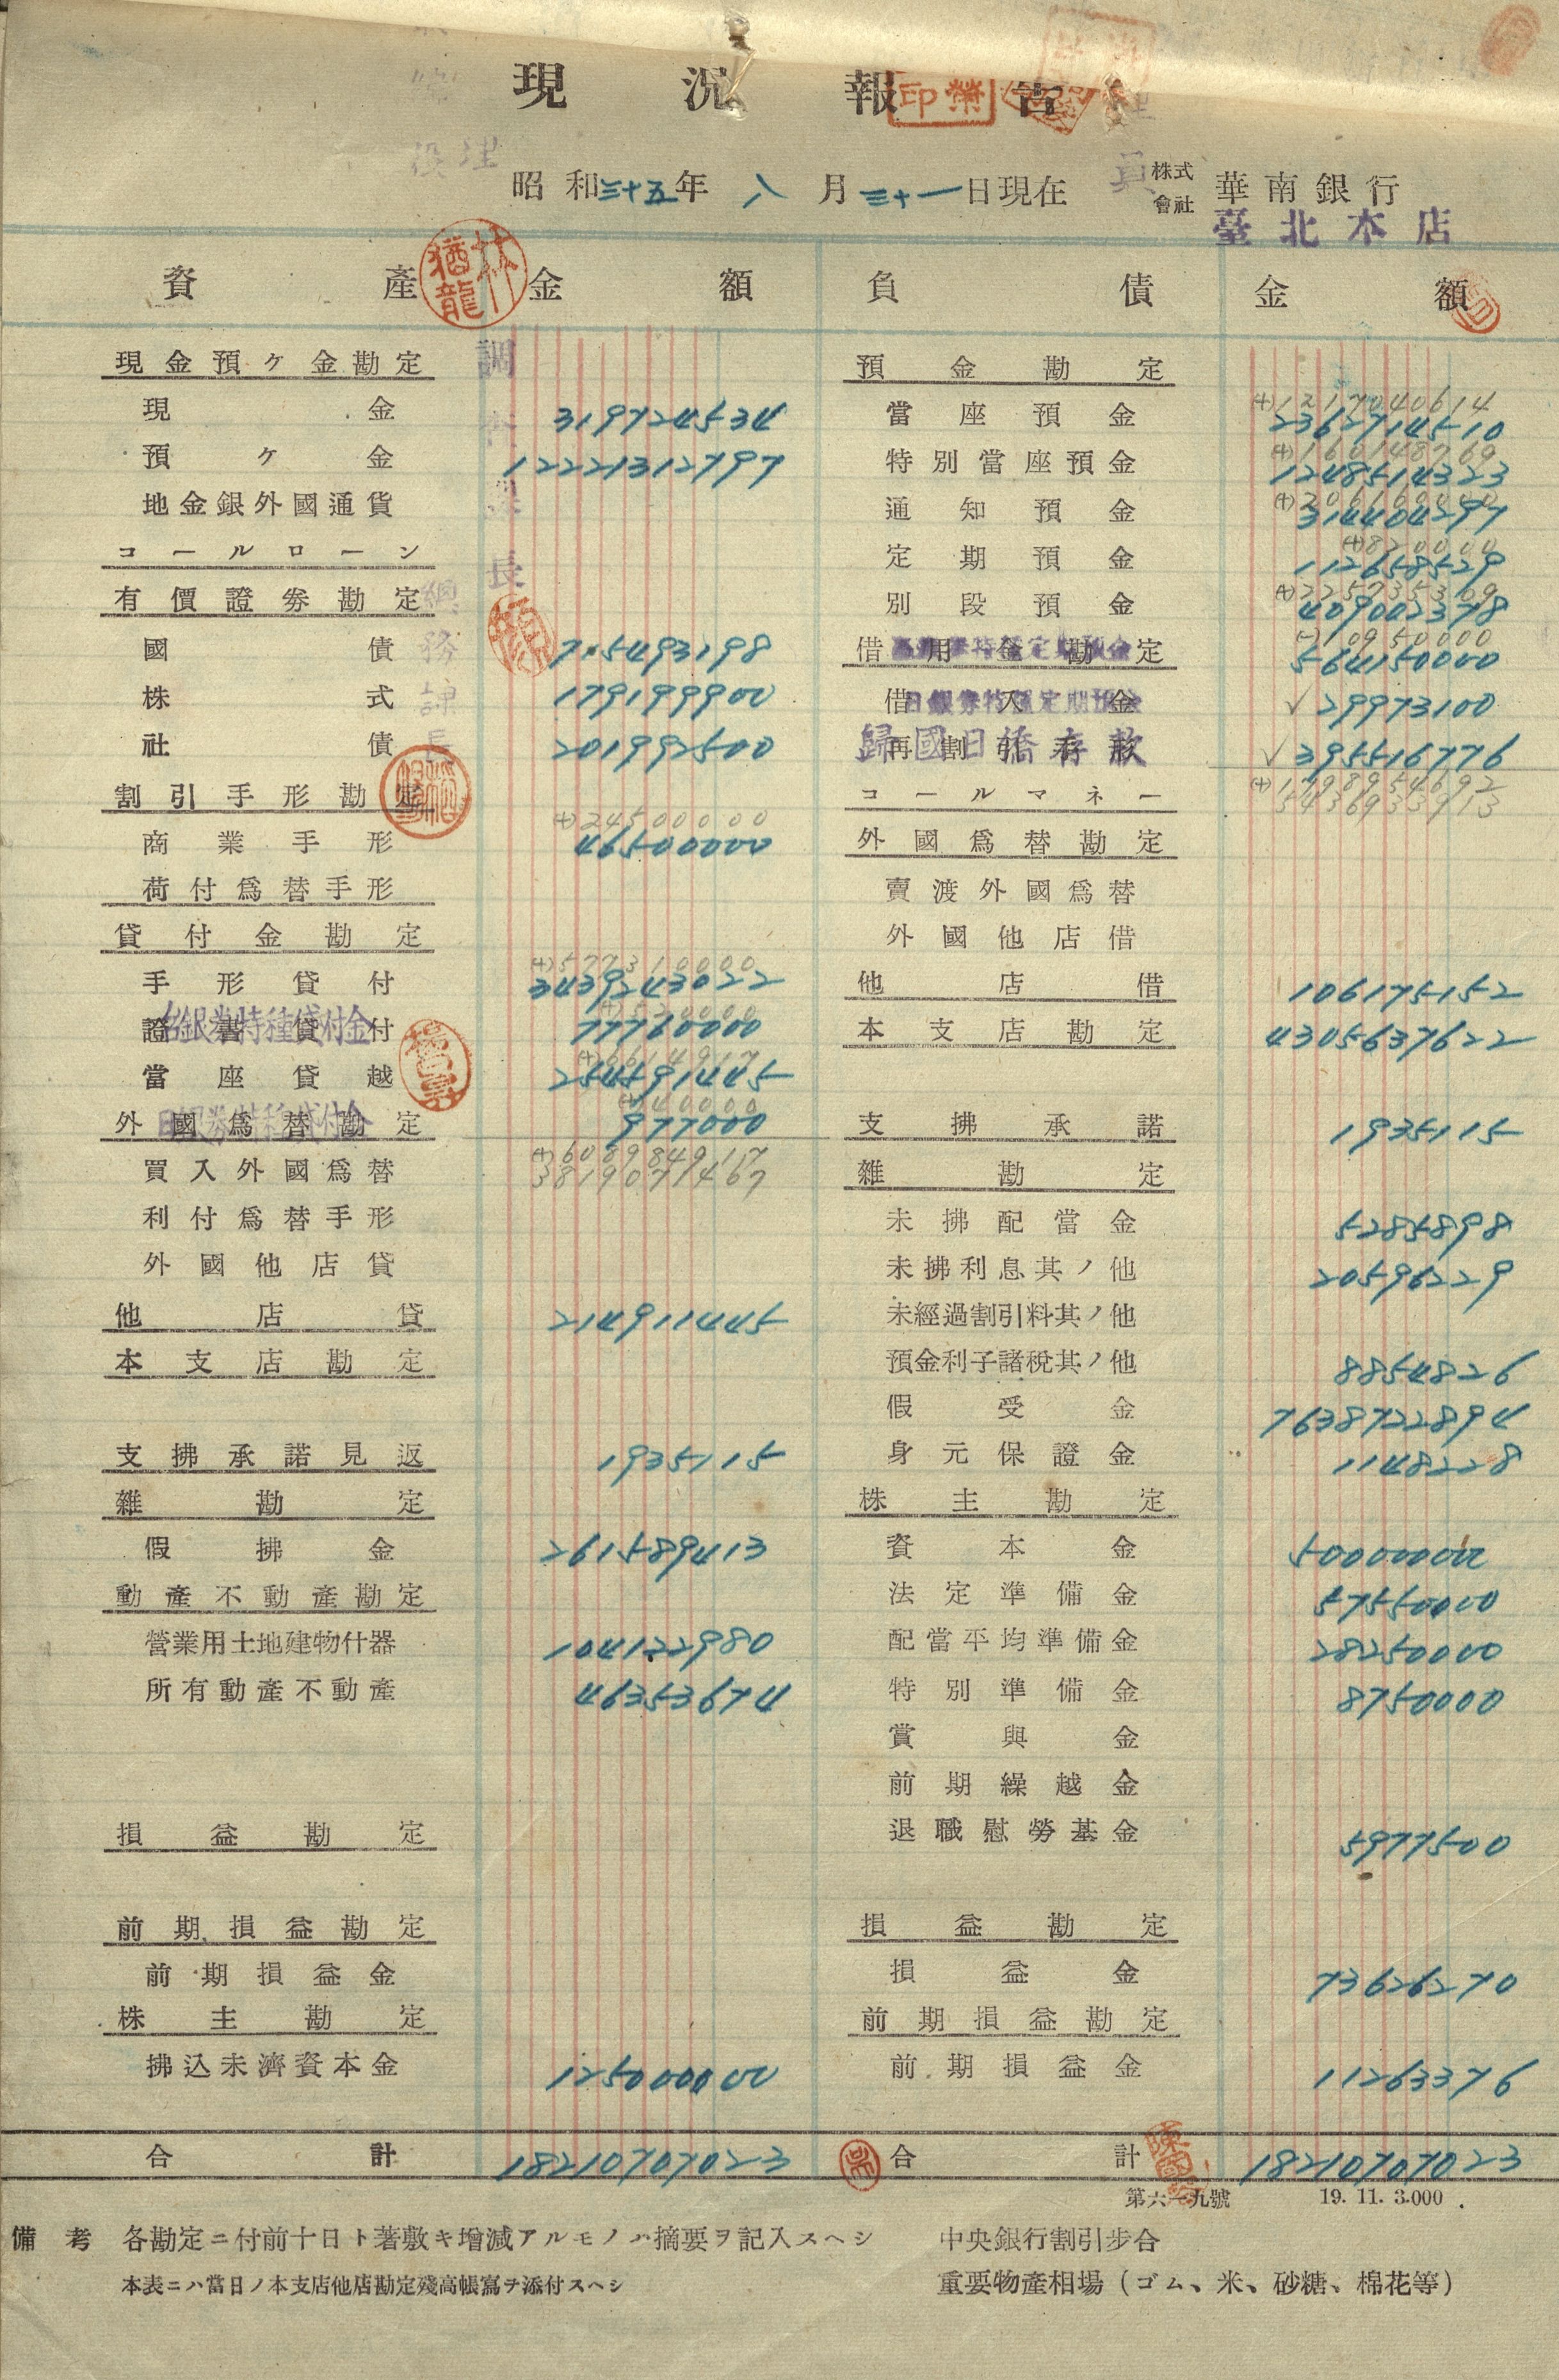 現況報告
印榮
昭和三十五年八月三十一日現在 株式會社 華南銀行
臺北本店
資產 金額 負債 金額
林猶龍
調
長
現金預ケ金勘定
現金 319724534
預ケ金 12221312797
地金銀外國通貨
コールローン
有價證劵勘定
總務課長
國債 715493198
株式 179199900
社債 201992500
割引手形勘定
(+)24500000
商業手形 46500000
荷付爲替手形
貸付金勘定
(+)577310000
手形貸付 3439243022
證書貸付 77760000
台銀券特種貸付金
(+)6614917
當座貸越 254591445
(+)40000
外國爲替勘定 977000
日銀券特種貸付金
(+)608984917
買入外國爲替 3819071467
利付爲替手形
外國他店貸
他店貸 214911445
本支店勘定
支拂承諾見返 1935115
雜勘定
假拂金 261589413
動產不動產勘定
營業用土地建物什器 104122980
所有動產不動產 46353674
損益勘定
前期損益勘定
前期損益金
株主勘定
拂込未濟資本金 125000000
合計 18210707023
預金勘定
(+)1217040614
當座預金 2362714510
(+)160148769
特別當座預金 1248514323
通知預金 314404297
(+)820000
定期預金 112658529
(+)225735309
別段預金 409002378
(-)10950000
借用金勘定 564150000
借入金 ✓29973100
日銀券特種定期預金
再割引 ✓395516776
歸國日僑存款
コールマネー (+)1798954692
5436933913
外國爲替勘定
賣渡外國爲替
外國他店借
他店借 106175152
本支店勘定 4305637622
支拂承諾 1935115
雜勘定
未拂配當金 5285898
未拂利息其ノ他 20596229
未經過割引料其ノ他
預金利子諸稅其ノ他 8854826
假受金 7638722894
身元保證金 1148228
株主勘定
資本金 500000000
法定準備金 57550000
配當平均準備金 28250000
特別準備金 8750000
賞與金
前期繰越金
退職慰勞基金 5977500
損益勘定
損益金 73626270
前期損益勘定
前期損益金 11263376
合計 18210707023
第六一九號 19. 11. 3.000
備考 各勘定ニ付前十日ト著敷キ增減アルモノハ摘要ヲ記入スヘシ
本表ニハ當日ノ本支店他店勘定殘高帳寫チ添付スヘシ
中央銀行割引步合
重要物產相場(ゴム、米、砂糖、棉花等)